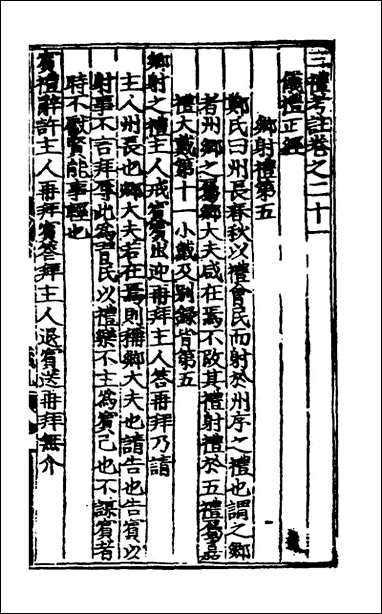 三禮考註卷之二十一
儀禮正經
鄉射禮第五
鄭氏曰州長春秋以禮會民而射於州序之禮也謂之鄉
者州鄉之屬鄉大夫或在焉不改其禮射禮於五禮屬嘉
禮大戴第十一小戴及别錄皆第五
鄉射之禮主人戒賓賓出迎再拜主人荅再拜乃請
主人州長也鄉大夫若在焉則稱鄉大夫也請告也告賓以
射事不言拜辱此為習民以禮樂不主為賓己也不謀賓者
時不獻賢能事輕也
賓禮辭許主人再拜賓荅拜主人退賓送再拜無介